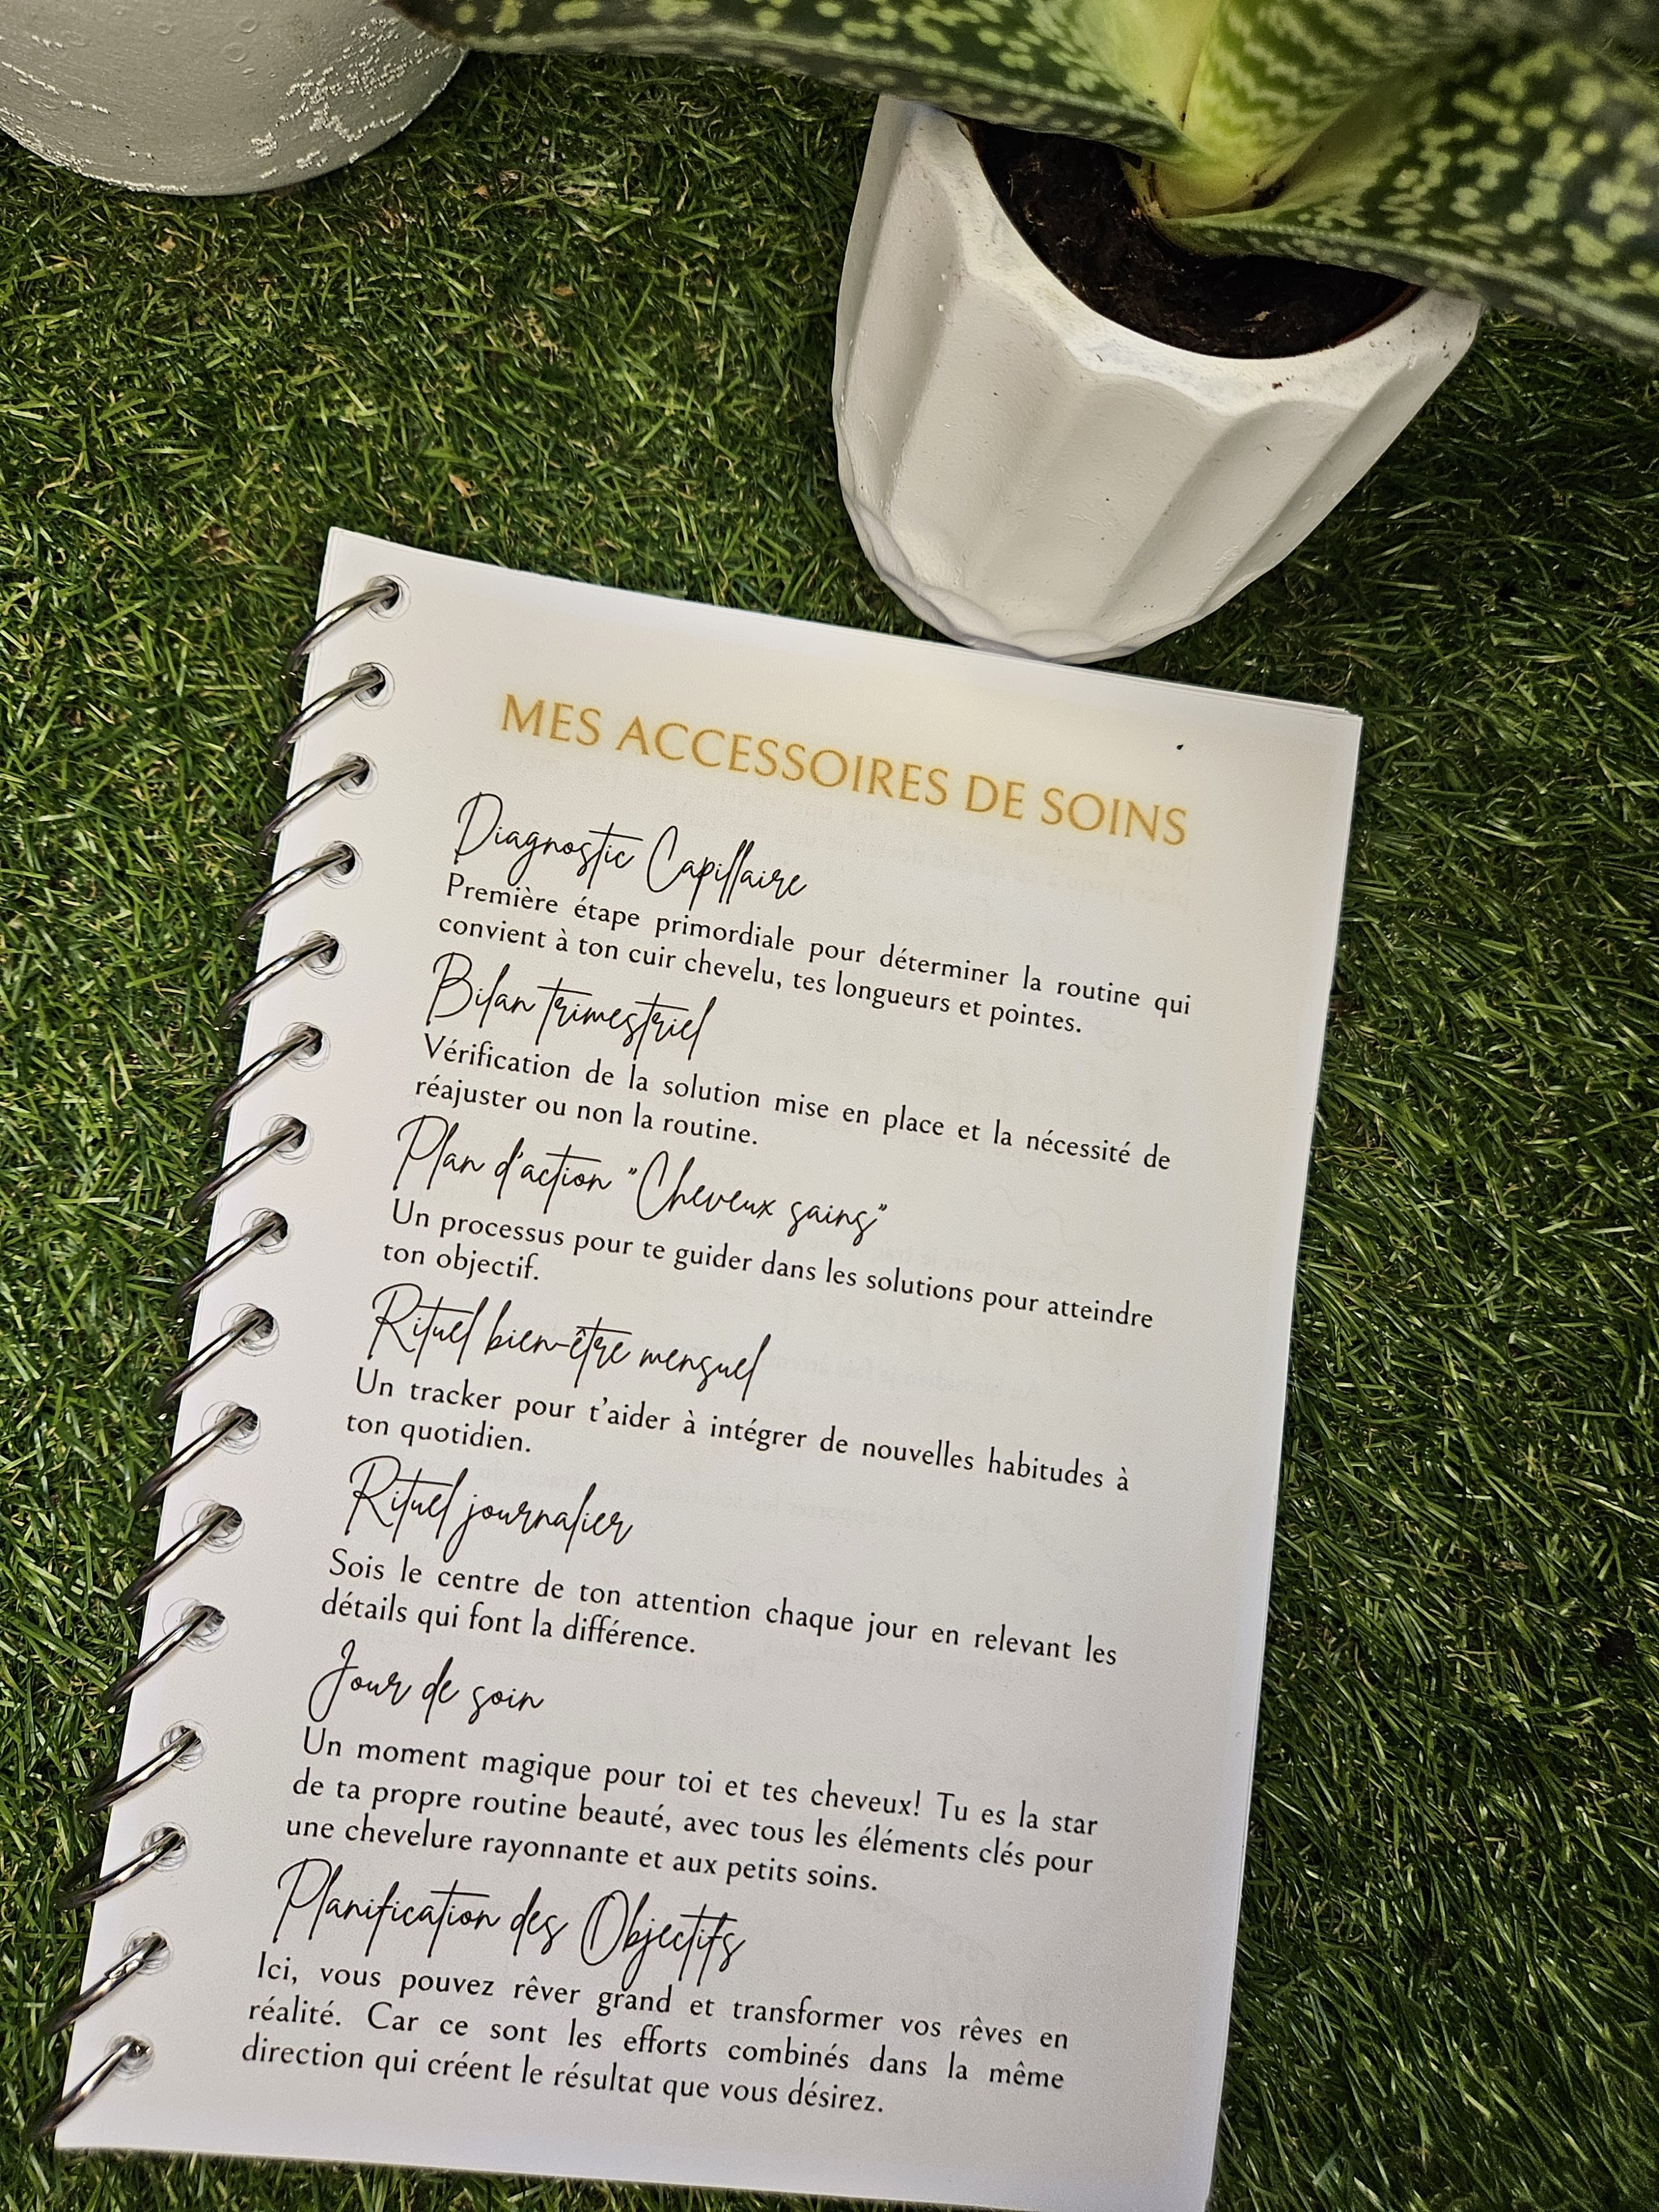 MES ACCESSOIRES DE SOINS
Diagnostic Capillaire
Première étape primordiale pour déterminer la routine qui
convient à ton cuir chevelu, tes longueurs et pointes.
Bilan trimestriel
Vérification de la solution mise en place et la nécessité de
réajuster ou non la routine.
Plan d'action "Cheveux sains"
Un processus pour te guider dans les solutions pour atteindre
ton objectif.
Rituel bien-être mensuel
Un tracker pour t'aider à intégrer de nouvelles habitudes à
ton quotidien.
Rituel journalier
Sois le centre de ton attention chaque jour en relevant les
détails qui font la différence.
Jour de soin
Un moment magique pour toi et tes cheveux! Tu es la star
de ta propre routine beauté, avec tous les éléments clés pour
une chevelure rayonnante et aux petits soins.
Planification des Objectifs
Ici, vous pouvez rêver grand et transformer vos rêves en
réalité. Car ce sont les efforts combinés dans la même
direction qui créent le résultat que vous désirez.